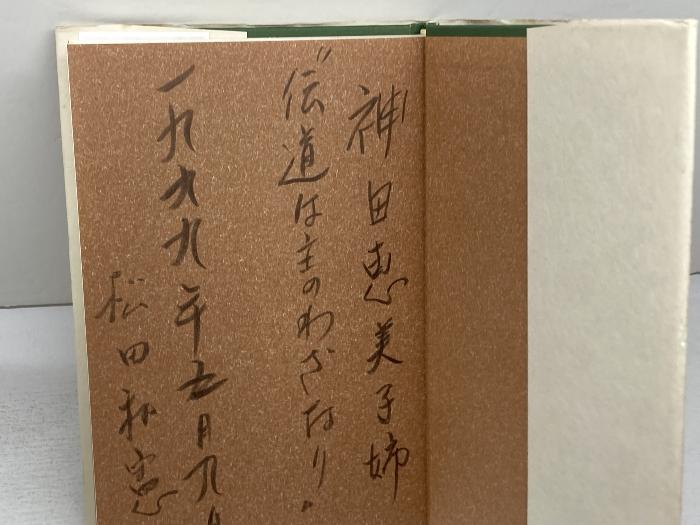 神田恵美子姉
“伝道は主のわざなり”
一九九九年五月九日
松田和憲